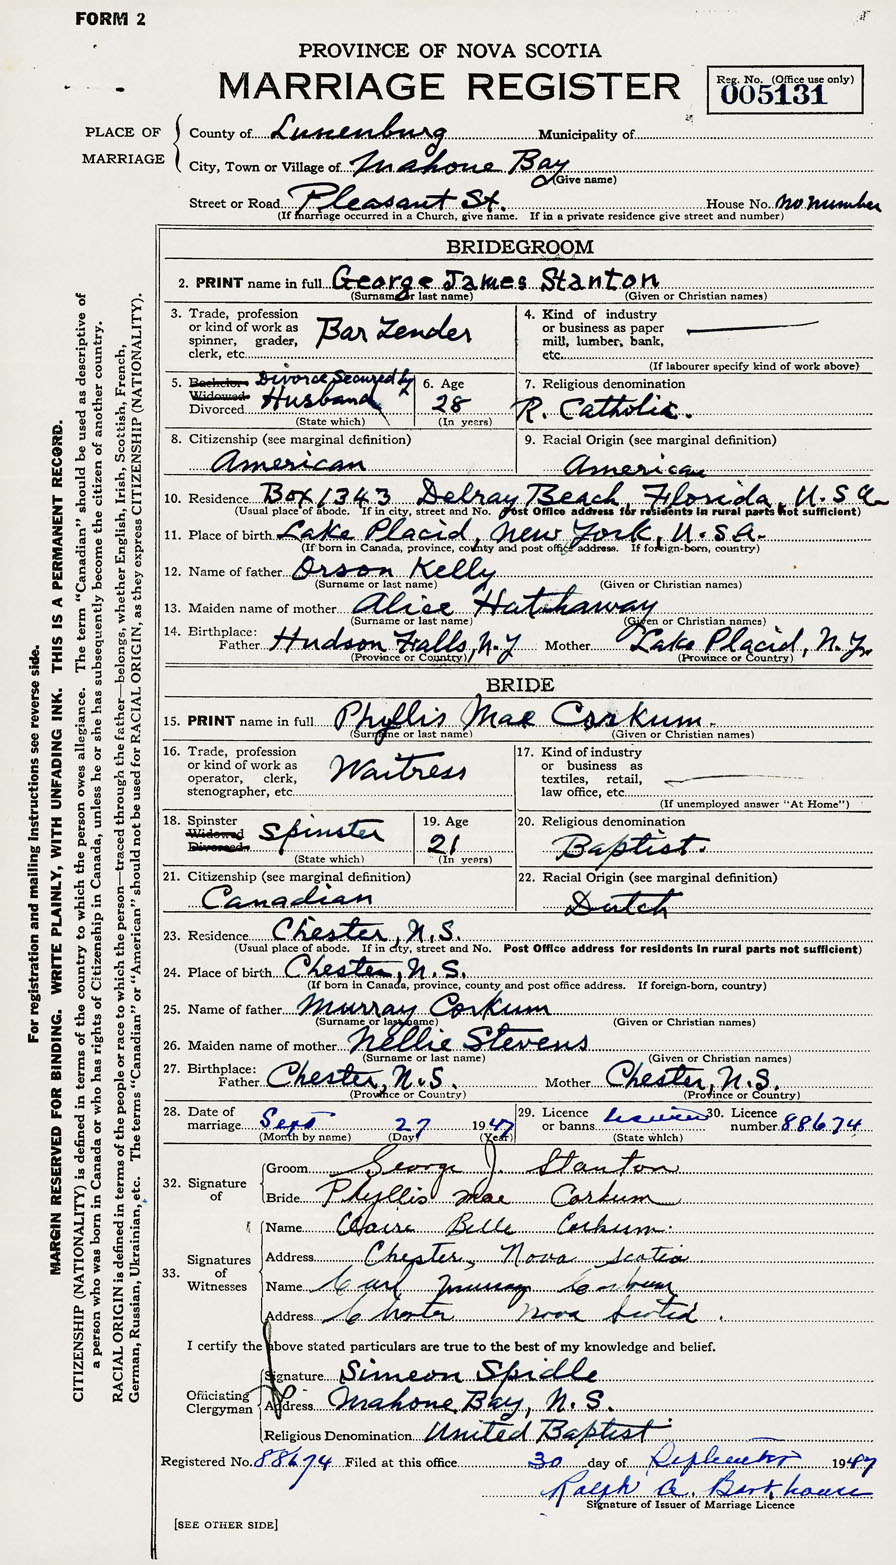 FORM 2
PROVINCE OF NOVA SCOTIA
MARRIAGE REGISTER
Reg. No. (Office use only)
005131
PLACE OF MARRIAGE
County of Lunenburg Municipality of
City, Town or Village of Mahone Bay
(Give name)
Street or Road Pleasant St. House No. no number
(If marriage occurred in a Church, give name. If in a private residence give street and number)
BRIDEGROOM
2. PRINT name in full George James Stanton
(Surname or last name) (Given or Christian names)
3. Trade, profession or kind of work as spinner, grader, clerk, etc. Bar Tender
4. Kind of industry or business as paper mill, lumber, bank, etc.
(If labourer specify kind of work above)
5. Bachelor Widowed Divorced Divorce Secured by Husband
(State which)
6. Age 28
(In years)
7. Religious denomination
R. Catholic.
8. Citizenship (see marginal definition)
American
9. Racial Origin (see marginal definition)
American
10. Residence Box 1343 Delray Beach, Florida, U.S.A.
(Usual place of abode. If in city, street and No. Post Office address for residents in rural parts not sufficient)
11. Place of birth Lake Placid, New York, U.S.A.
(If born in Canada, province, county and post office address. If foreign-born, country)
12. Name of father Orson Kelly
(Surname or last name) (Given or Christian names)
13. Maiden name of mother Alice Hathaway
(Surname or last name) (Given or Christian names)
14. Birthplace:
Father Hudson Falls, N.Y Mother Lake Placid, N.Y.
(Province or Country) (Province or Country)
BRIDE
15. PRINT name in full Phyllis Mae Corkum.
(Surname or last name) (Given or Christian names)
16. Trade, profession or kind of work as operator, clerk, stenographer, etc. Waitress
17. Kind of industry or business as textiles, retail, law office, etc.
(If unemployed answer "At Home")
18. Spinster Widowed Divorced Spinster
(State which)
19. Age 21
(In years)
20. Religious denomination
Baptist.
21. Citizenship (see marginal definition)
Canadian
22. Racial Origin (see marginal definition)
Dutch
23. Residence Chester, N.S.
(Usual place of abode. If in city, street and No. Post Office address for residents in rural parts not sufficient)
24. Place of birth Chester, N.S.
(If born in Canada, province, county and post office address. If foreign-born, country)
25. Name of father Murray Corkum
(Surname or last name) (Given or Christian names)
26. Maiden name of mother Nellie Stevens
(Surname or last name) (Given or Christian names)
27. Birthplace:
Father Chester, N.S. Mother Chester, N.S.
(Province or Country) (Province or Country)
28. Date of marriage Sept 27 1947
(Month by name) (Day) (Year)
29. Licence or banns licence
(State which)
30. Licence number 88674
32. Signature of
Groom George J. Stanton
Bride Phyllis Mae Corkum
33. Signatures of Witnesses
Name Claire Belle Corkum.
Address Chester, Nova Scotia
Name Carl Murray Corkum
Address Chester Nova Scotia.
I certify the above stated particulars are true to the best of my knowledge and belief.
Officiating Clergyman
Signature Simeon Spidle
Address Mahone Bay, N.S.
Religious Denomination United Baptist
Registered No. 88674 Filed at this office 30 day of September 1947
Ralph A. Barkhouse
Signature of Issuer of Marriage Licence
[SEE OTHER SIDE]
For registration and mailing instructions see reverse side.
MARGIN RESERVED FOR BINDING. WRITE PLAINLY, WITH UNFADING INK. THIS IS A PERMANENT RECORD.
CITIZENSHIP (NATIONALITY) is defined in terms of the country to which the person owes allegiance. The term "Canadian" should be used as descriptive of
a person who was born in Canada or who has rights of Citizenship in Canada, unless he or she has subsequently become the citizen of another country.
RACIAL ORIGIN is defined in terms of the people or race to which the person—traced through the father—belongs, whether English, Irish, Scottish, French,
German, Russian, Ukrainian, etc. The terms "Canadian" or "American" should not be used for RACIAL ORIGIN, as they express CITIZENSHIP (NATIONALITY).